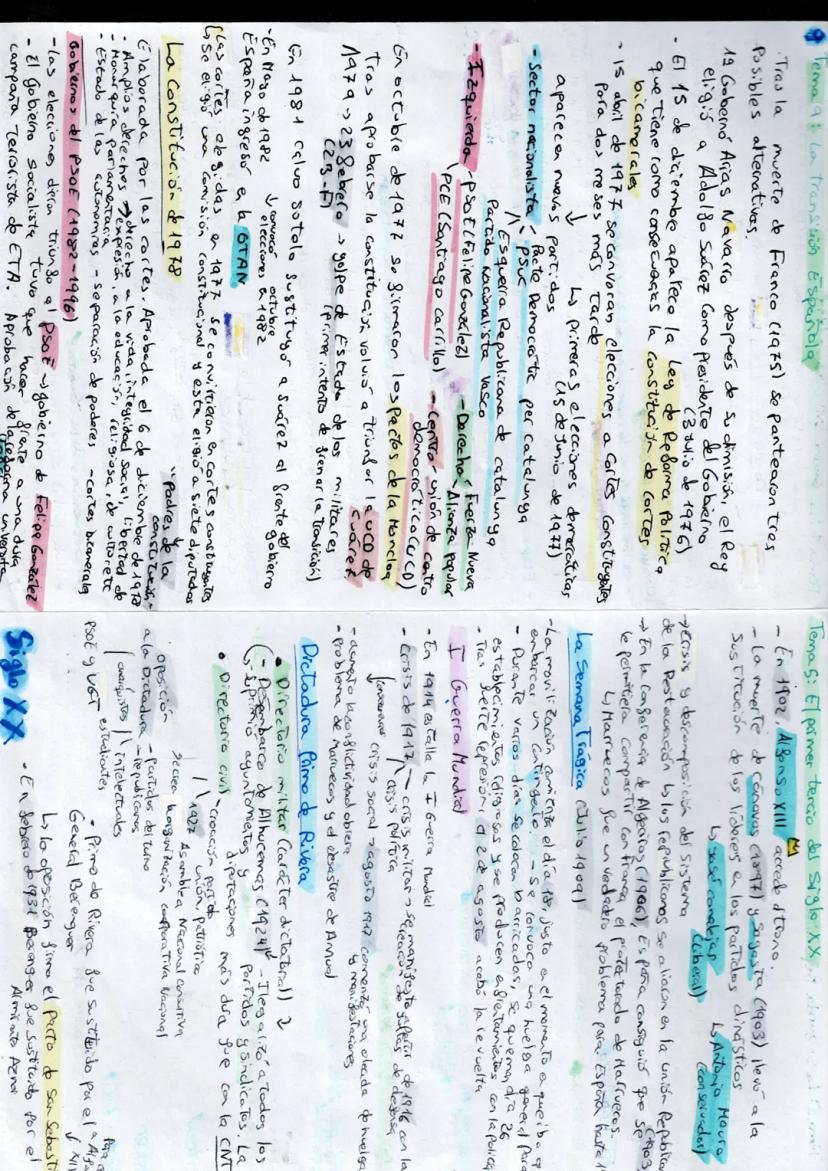 Tema 9: La transición Española
Tras la muerte de Franco (1975) se plantearon tres
posibles alternativas.
1º Gobierno Arias Navarro después de su dimisión, el Rey
eligió a Adolfo Suárez como Presidente del Gobierno
(3 Julio de 1976)
- El 15 de diciembre aparece la Ley de Reforma Política
que tiene como consecuencias la constitución de Cortes
bicamerales
- 15 abril de 1977 se convocan elecciones a Cortes Constituyentes
para dos meses más tarde
↳ primeras elecciones democráticas
(15 de Junio de 1977)
aparecen nuevos partidos
- Sector nacionalista
Pacte Democràtic per catalunya
PSUC
Esquerra Republicana de catalunya
Partido Nacionalista Vasco
- Izquierda - PSOE (Felipe González)
PCE (Santiago carrillo)
- Derecha
Fuerza Nueva
Alianza popular
- Centro unión de centro
democrático (UCD)
En octubre de 1977 se firmaron los pactos de la Moncloa
Tras aprobarse la constitución volvió a triunfar la UCD de
Suárez
1979 → 23 febrero → golpe de Estado de los militares
(23-F) (primer intento de frenar la transición)
En 1981 calvo sotelo sustituyó a suárez al frente del
gobierno
- En Mayo de 1982 ↓ convocó elecciones a octubre 1982
España ingresó a la OTAN
Las cortes elegidas en 1977 se convirtieron en cortes constituyentes
↳ se eligió una comisión constitucional y esta eligió a siete diputados
"padres de la
constitución"
La Constitución de 1978
Elaborada por las cortes. Aprobada el 6 de diciembre de 1978
- Amplios derechos → derecho a la vida, integridad social, libertad de
expresión, a la educación, religiosa, de
- Monarquía parlamentaria
- Estado de las autonomías - separación de poderes - cortes bicamerales
Gobiernos del PSOE (1982-1996)
- las elecciones dieron triunfo al PSOE → gobierno de Felipe González
- El gobierno socialista tuvo que hacer frente a una dura
campaña Terrorista de ETA. Aprobación de la reforma universita
Tema 5: El primer tercio del Siglo XX
- En 1902, Alfonso XIII accede al trono.
- La muerte de Cánovas (1897) y Sagasta (1903) llevó a la
sustitución de los líderes en los partidos dinásticos
↳ José canalejas
(liberal)
↳ Antonio Maura
(conservador)
→ crisis y descomposición del sistema
de la Restauración ↳ los republicanos se alían en la unión Republica
→ En la conferencia de Algeciras (1906), España consiguió que se
le permitiera compartir con Francia el protectorado de Marruecos.
↳ Marruecos fue un verdadero problema para España hasta
La Semana Trágica (Julio 1909)
- La movilización comienza el día 18 justo en el momento en que iba a
embarcar un contingente. - Se convocó una huelga general para
- Durante varios días se colocan barricadas, se queman
establecimientos religiosos y se producen enfrentamientos con la policía
- Tras fuerte represión, el 2 de agosto acabó la revuelta
I Guerra Mundial
- En 1914 estalla la I Guerra Mundial
- crisis de 1917
crisis militar → se manifiesta a partir de 1916 con la
creación de juntas de defensa
crisis política
crisis social → agosto 1917 comenzó una oleada de huelgas
y manifestaciones
- aumento la conflictividad obrera
- problema de Marruecos y el desastre de Annual
Dictadura Primo de Rivera
• Directorio militar (carácter dictatorial)
- Desembarco de Alhucemas (1924) - Ilegalizó a todos los
partidos y sindicatos. La
más dura fue con la CNT
↳ suprimió ayuntamientos y
diputaciones
• Directorio civil
creación partido
unión patriótica
1927 Asamblea Nacional consultiva
→ crea la organización corporativa Nacional
oposición
a la Dictadura
- partidos del turno
- republicanos
anarquistas
Intelectuales
estudiantes
PSOE y UGT
- Primo de Rivera fue sustituido por el
General Berenguer
↳ la oposición firmo el pacto de San Sebasti
- En febrero de 1931 Berenguer fue sustituido por el
Almirante Aznar
Siglo XX